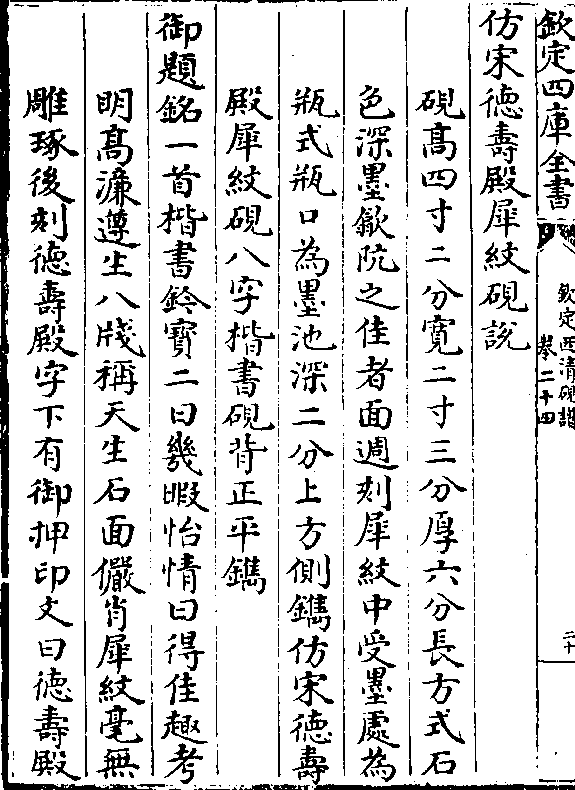 欽定四庫全書
欽定西清硯譜
卷二十四
二十
仿宋德壽殿犀紋硯說
硯高四寸二分寬二寸三分厚六分長方式石
色深墨歙阬之佳者面週刻犀紋中受墨處為
瓶式瓶口為墨池深二分上方側鐫仿宋德壽
殿犀紋硯八字楷書硯背正平鐫
御題銘一首楷書鈐寳二曰幾暇怡情曰得佳趣考
明髙濂遵生八牋稱天生石面儼肖犀紋毫無
雕琢後刻徳壽殿字下有御押印文曰德壽殿